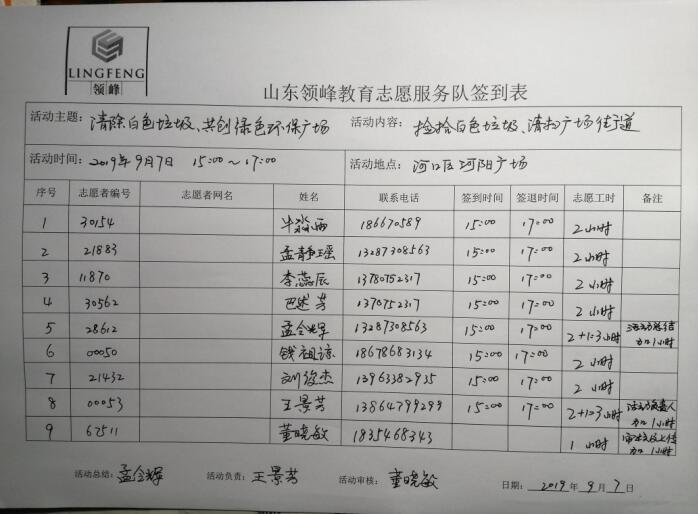 LINGFENG
领峰
山东领峰教育志愿服务队签到表
活动主题: 清除白色垃圾、共创绿色环保广场 活动内容: 捡拾白色垃圾、清扫广场街道
活动时间: 2019年9月7日 15:00~17:00 活动地点: 河口区河阳广场
序号 志愿者编号 志愿者网名 姓名 联系电话 签到时间 签退时间 志愿工时 备注
1 30154 186670589 15:00 17:00 2小时
2 21883 孟静瑶 13287308563 15:00 17:00 2小时
3 11870 李蕊辰 13780752317 15:00 17:00 2小时
4 30562 芳 1370752317 15:00 17:00 2小时
5 28612 孟令辉 13287308563 15:00 17:00 2+1=3小时 活动总结
加1小时
6 00050 钱祖谅 18678683134 15:00 17:00 2小时
7 21432 刘俊杰 15:00 17:00 2小时
8 00053 王景芳 13864799299 15:00 17:00 2+1=3小时 活动负责人
加1小时
9 67511 董晓敏 1835468343 1小时 加1小时
活动总结: 孟令辉 活动负责: 王景芳 活动审核: 董晓敏 日期: 2019年9月7日